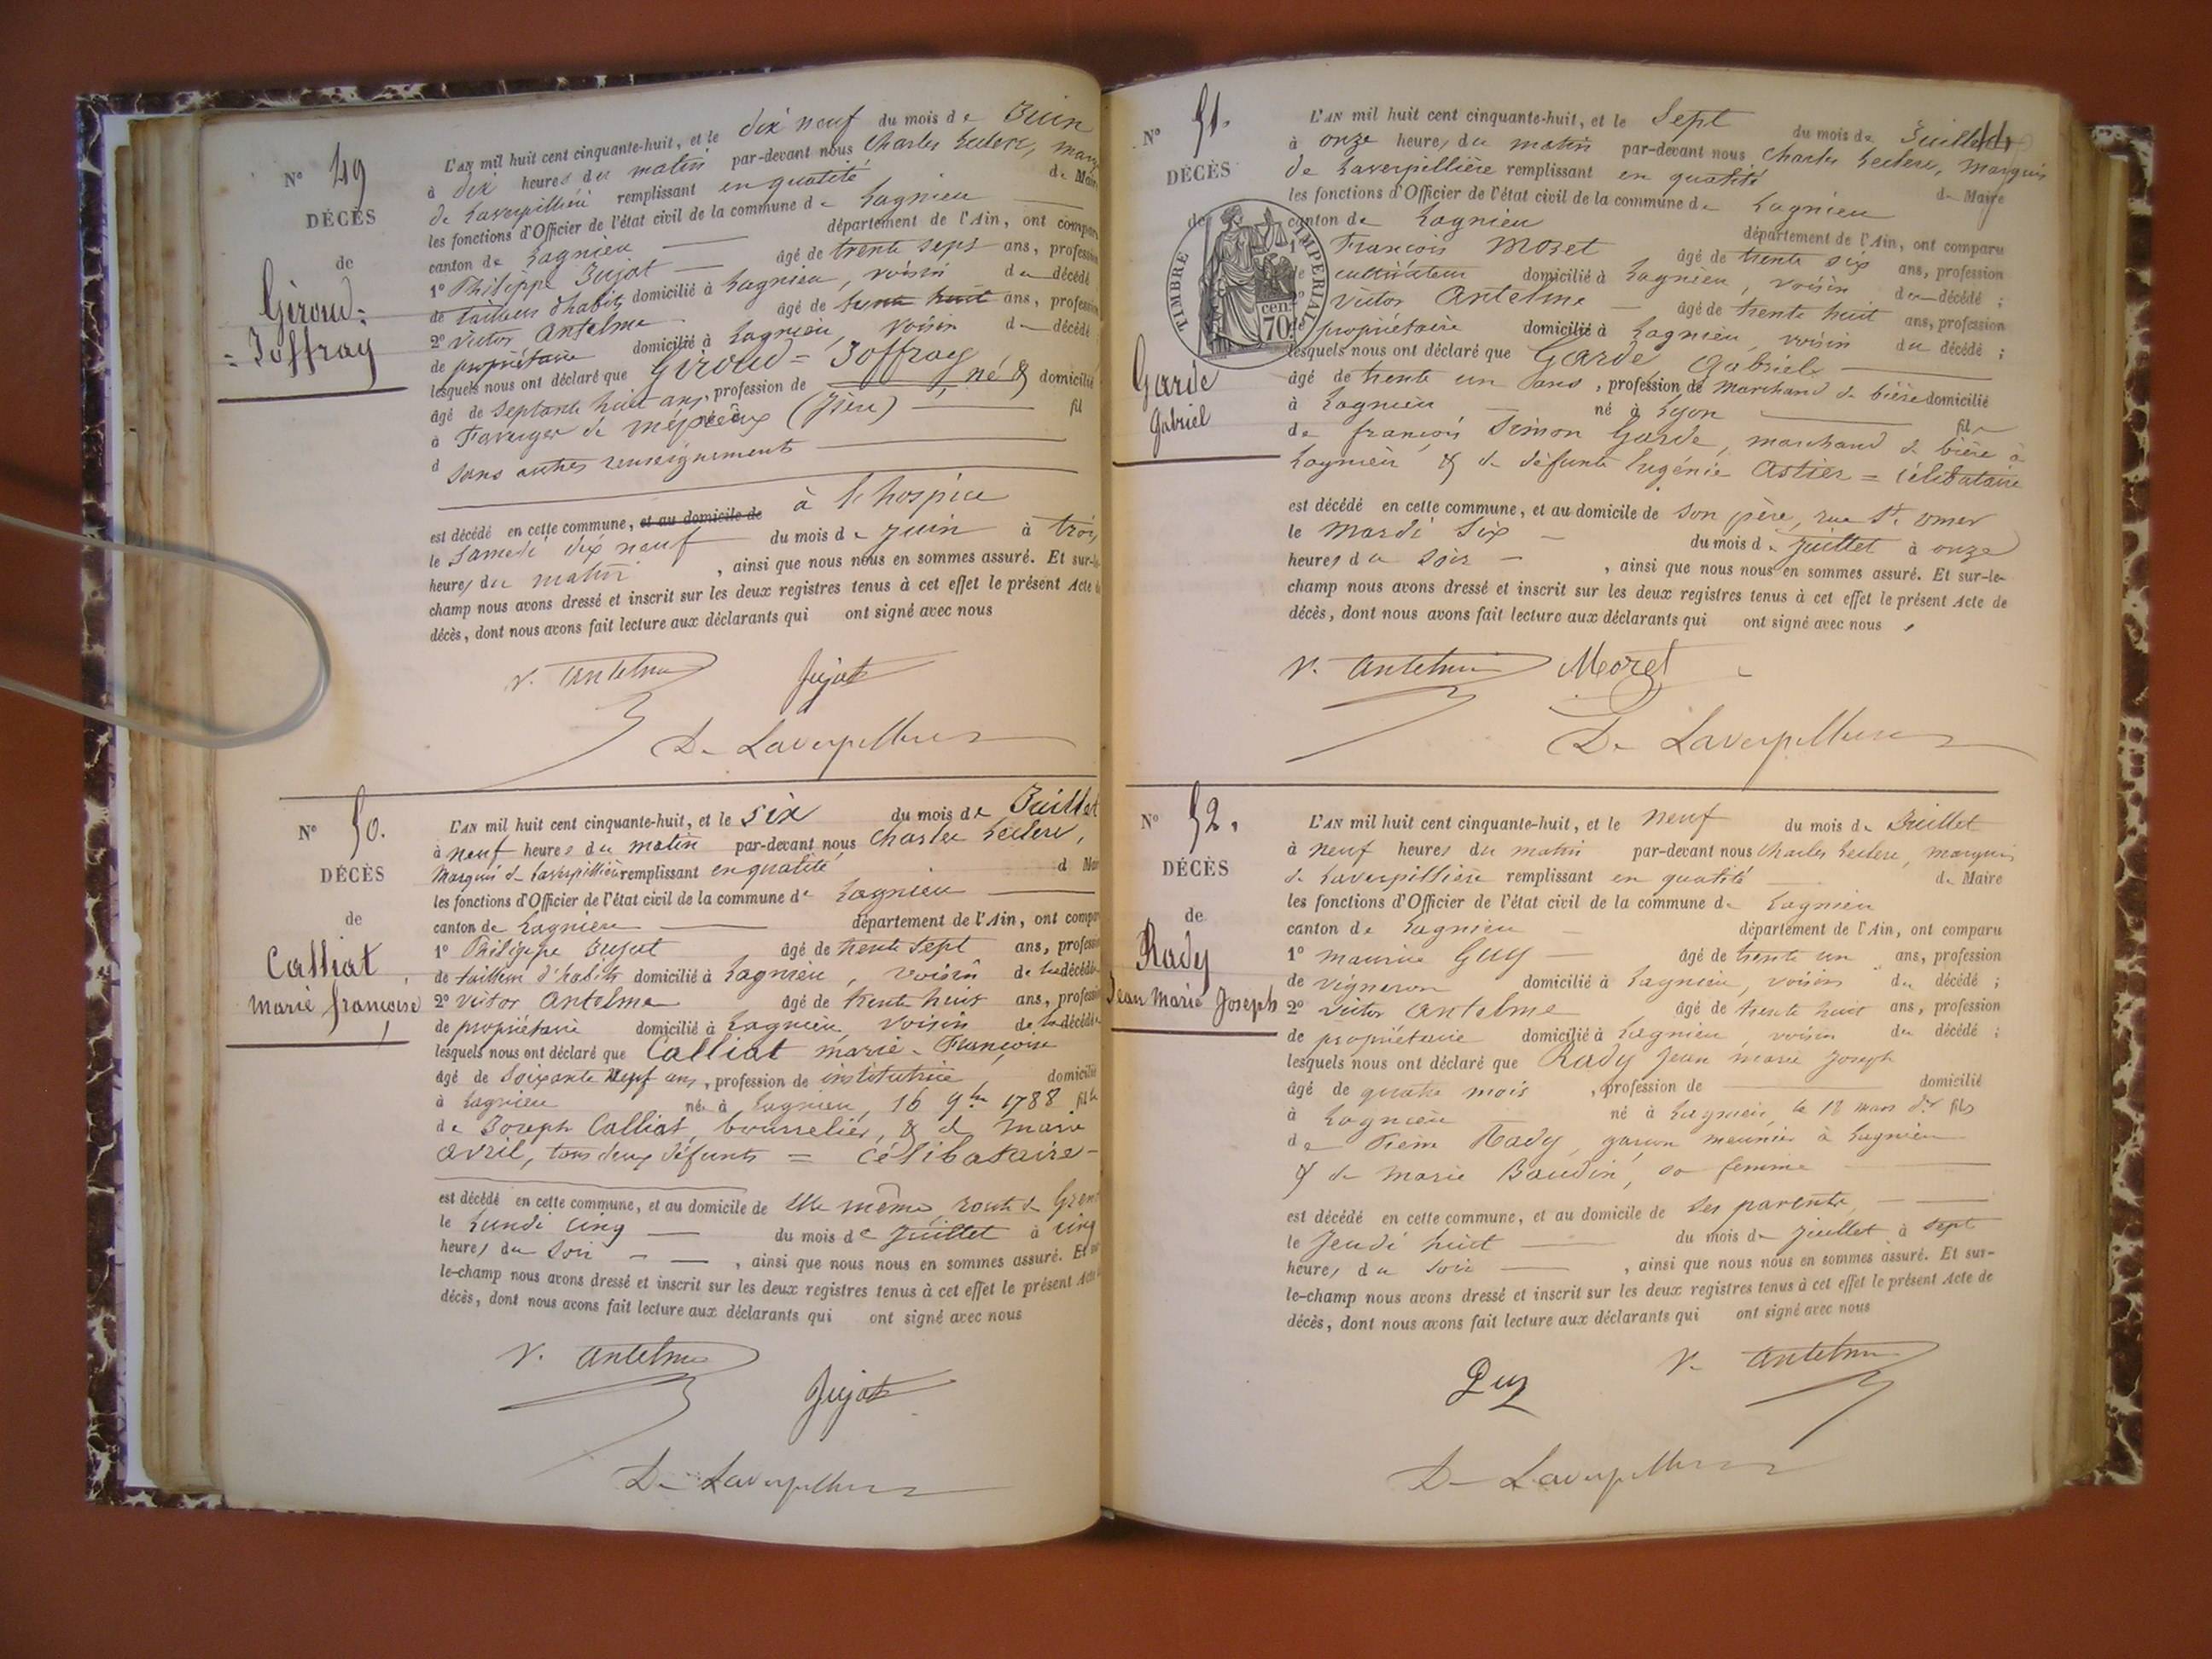 N° 49
DÉCÈS
de
Giroud =
= Joffray
L'AN mil huit cent cinquante-huit, et le dix neuf du mois de Juin
à dix heures du matin par-devant nous Charles Leclerc, marq
de Laverpillière remplissant en qualité de Mai
les fonctions d'Officier de l'état civil de la commune de Lagnieu
canton de Lagnieu département de l'Ain, ont compar
1° Philippe Jujat âgé de trente sept ans, profession
de tailleur d'habits domicilié à Lagnieu, voisin du décédé
2° Victor Antelme âgé de trente huit ans, profession
de propriétaire domicilié à Lagnieu, voisin d décédé
lesquels nous ont déclaré que Giroud = Joffray
âgé de septante huit ans, profession de né & domicilié
à Faverges de mépieux (Isère) fil
d sans autres renseignements
est décédé en cette commune, et au domicile de à l'hospice
le samedi dix neuf du mois de juin à trois
heures du matin , ainsi que nous nous en sommes assuré. Et sur-le-
champ nous avons dressé et inscrit sur les deux registres tenus à cet effet le présent Acte de
décès, dont nous avons fait lecture aux déclarants qui ont signé avec nous
V. Antelme Jujat
De Laverpillière
N° 50.
DÉCÈS
de
Calliat
marie françoise
L'AN mil huit cent cinquante-huit, et le six du mois de Juillet
à neuf heures du matin par-devant nous Charles Leclerc,
Marquis de Laverpillière remplissant en qualité d Mai
les fonctions d'Officier de l'état civil de la commune de Lagnieu
canton de Lagnieu département de l'Ain, ont compar
1° Philippe Jujat âgé de trente sept ans, profession
de tailleur d'habits domicilié à Lagnieu, voisin de la décédée
2° Victor Antelme âgé de trente huit ans, profession
de propriétaire domicilié à Lagnieu, voisin de la décédée
lesquels nous ont déclaré que Calliat marie-Françoise
âgé de soixante neuf ans, profession de institutrice domicilié
à Lagnieu née à Lagnieu, 16 9bre 1788 fille
de Joseph Calliat, bourrelier, & d marie
avril, tous deux défunts = célibataire -
est décédé en cette commune, et au domicile de elle même, route de Gren
le Lundi cinq du mois de Juillet à cinq
heures du soir , ainsi que nous nous en sommes assuré. Et sur
le-champ nous avons dressé et inscrit sur les deux registres tenus à cet effet le présent Acte
décès, dont nous avons fait lecture aux déclarants qui ont signé avec nous
V. Antelme
Jujat
De Laverpillière
N° 51.
DÉCÈS
de
TIMBRE IMPERIAL
70 cen.
Garde
Gabriel
L'AN mil huit cent cinquante-huit, et le Sept du mois de Juillet
à onze heures du matin par-devant nous Charles Leclerc, marquis
de Laverpillière remplissant en qualité de Maire
les fonctions d'Officier de l'état civil de la commune de Lagnieu
canton de Lagnieu département de l'Ain, ont comparu
1° François Moret âgé de trente six ans, profession
de cultivateur domicilié à Lagnieu, voisin du décédé ;
2° Victor Antelme âgé de trente huit ans, profession
de propriétaire domicilié à Lagnieu, voisin du décédé ;
lesquels nous ont déclaré que Garde Gabriel
âgé de trente un ans, profession de Marchand de bière domicilié
à Lagnieu né à Lyon fils
de françois Simon Garde, marchand de bière à
Lagnieu & de défunte Eugénie Astier = célibataire
est décédé en cette commune, et au domicile de son père, rue St. omer
le mardi six du mois de juillet à onze
heures du soir , ainsi que nous nous en sommes assuré. Et sur-le-
champ nous avons dressé et inscrit sur les deux registres tenus à cet effet le présent Acte de
décès, dont nous avons fait lecture aux déclarants qui ont signé avec nous ,
V. Antelme Moret
De Laverpillière
N° 52.
DÉCÈS
de
Rady
Jean Marie Joseph
L'AN mil huit cent cinquante-huit, et le neuf du mois de Juillet
à neuf heures du matin par-devant nous Charles Leclerc, marquis
de Laverpillière remplissant en qualité de Maire
les fonctions d'Officier de l'état civil de la commune de Lagnieu
canton de Lagnieu département de l'Ain, ont comparu
1° maurice Guy âgé de trente un ans, profession
de vigneron domicilié à Lagnieu, voisin du décédé ;
2° Victor Antelme âgé de trente huit ans, profession
de propriétaire domicilié à Lagnieu, voisin du décédé ;
lesquels nous ont déclaré que Rady Jean marie Joseph
âgé de quatre mois , profession de domicilié
à Lagnieu né à Lagnieu, le 12 mars dr fils
de Pierre Rady, garçon meunier à Lagnieu
& de Marie Baudin, sa femme
est décédé en cette commune, et au domicile de ses parents,
le Jeudi huit du mois de juillet à sept
heures du soir , ainsi que nous nous en sommes assuré. Et sur-
le-champ nous avons dressé et inscrit sur les deux registres tenus à cet effet le présent Acte de
décès, dont nous avons fait lecture aux déclarants qui ont signé avec nous
V. Antelme
De Laverpillière